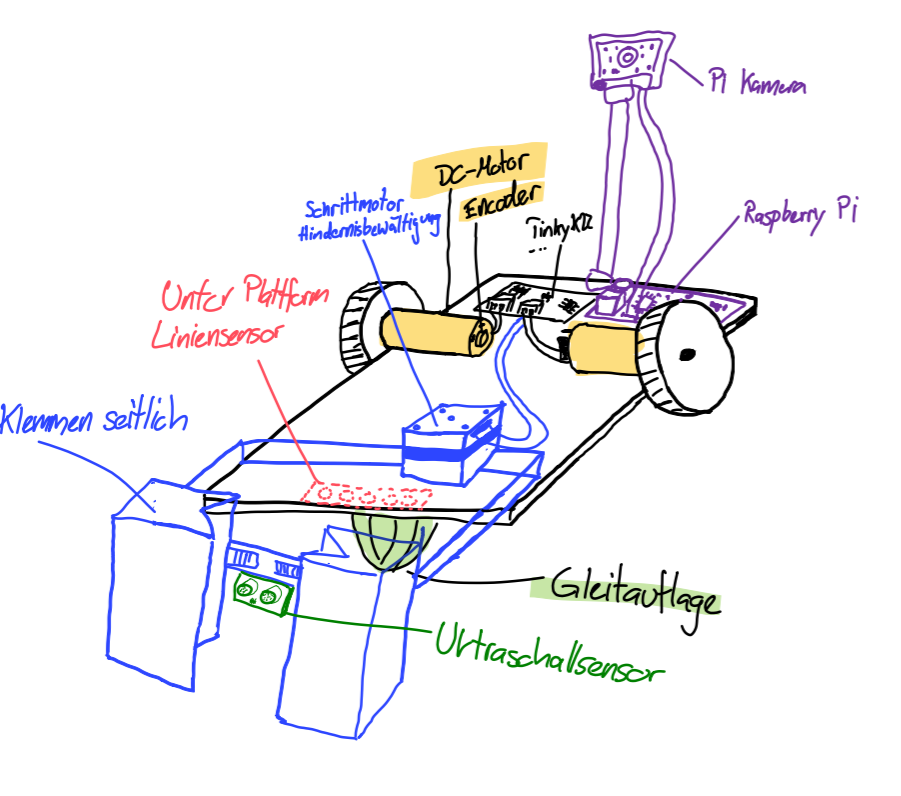 Pi Kamera
DC-Motor
Encoder
Schrittmotor
Hindernisbewältigung
TinkyK22
...
Raspberry Pi
Unter Plattform
Liniensensor
Klemmen seitlich
Gleitauflage
Ultraschallsensor